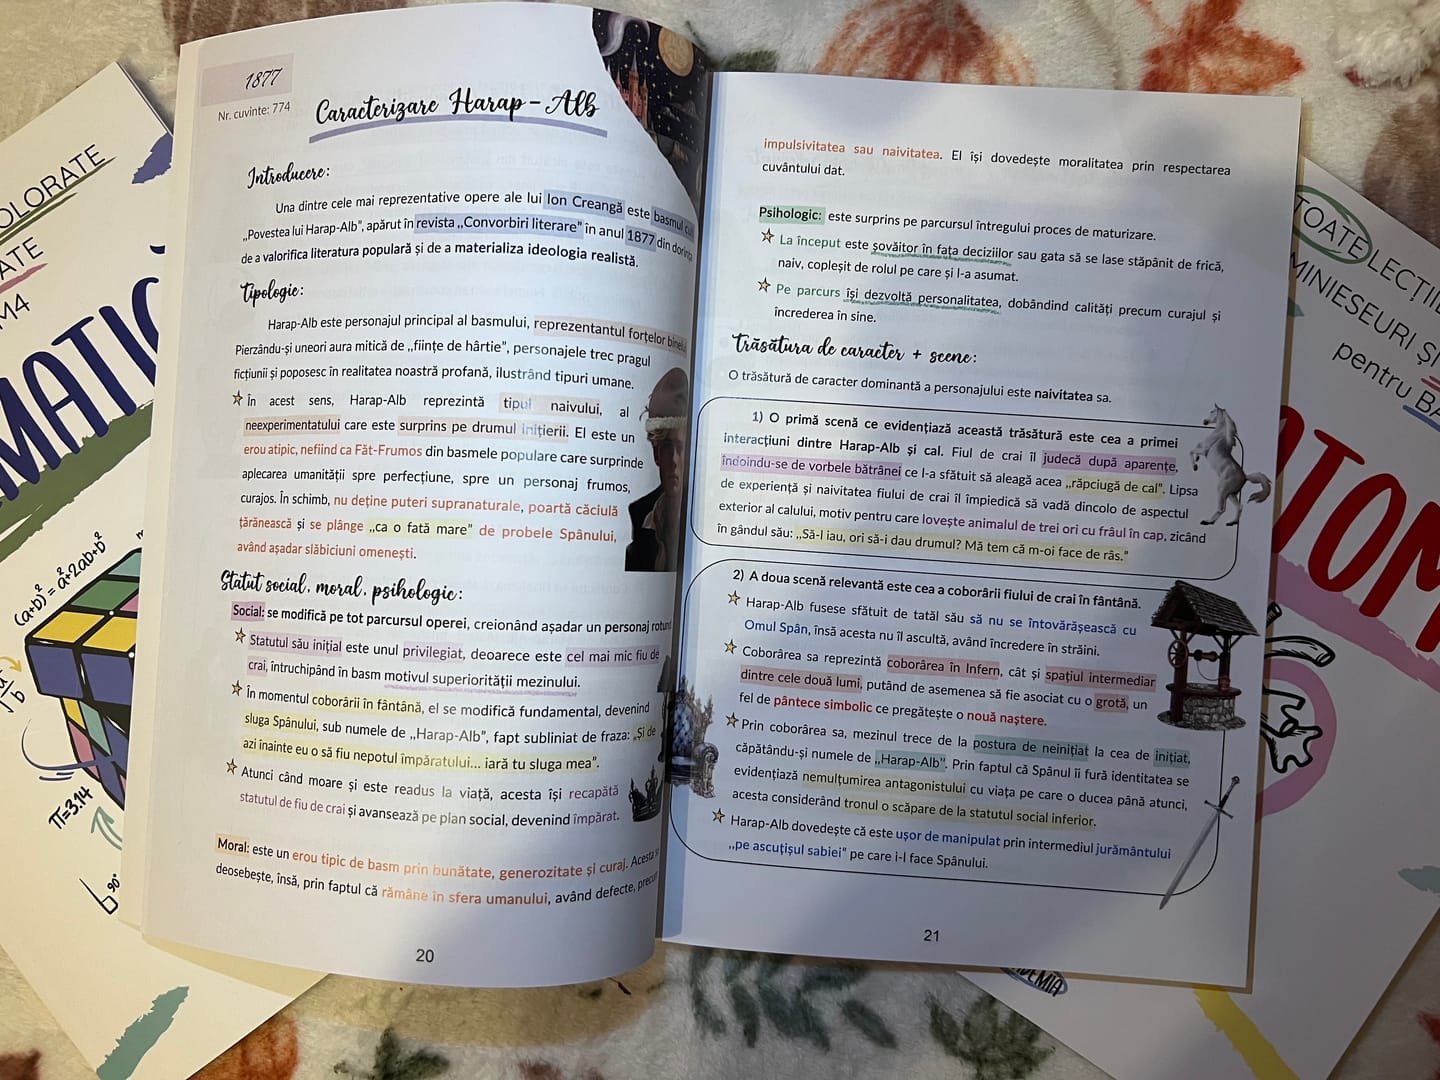 1877
Nr. cuvinte: 774
Caracterizare Harap-Alb
Introducere:
Una dintre cele mai reprezentative opere ale lui Ion Creangă este basmul
„Povestea lui Harap-Alb”, apărut în revista „Convorbiri literare” în anul 1877 din dorința
de a valorifica literatura populară și de a materializa ideologia realistă.
Tipologie:
Harap-Alb este personajul principal al basmului, reprezentantul forțelor binelui.
Pierzându-și uneori aura mitică de „ființe de hârtie”, personajele trec pragul
ficțiunii și poposesc în realitatea noastră profană, ilustrând tipuri umane.
În acest sens, Harap-Alb reprezintă tipul naivului, al
neexperimentatului care este surprins pe drumul inițierii. El este un
erou atipic, nefiind ca Făt-Frumos din basmele populare care surprinde
aplecarea umanității spre perfecțiune, spre un personaj frumos,
curajos. În schimb, nu deține puteri supranaturale, poartă căciulă
țărănească și se plânge „ca o fată mare” de probele Spânului,
având așadar slăbiciuni omenești.
Statut social, moral, psihologic:
Social: se modifică pe tot parcursul operei, creionând așadar un personaj rotund
Statutul său inițial este unul privilegiat, deoarece este cel mai mic fiu de
crai, întruchipând în basm motivul superiorității mezinului.
În momentul coborârii în fântână, el se modifică fundamental, devenind
sluga Spânului, sub numele de „Harap-Alb”, fapt subliniat de fraza: „Și de
azi înainte eu o să fiu nepotul împăratului... iară tu sluga mea”.
Atunci când moare și este readus la viață, acesta își recapătă
statutul de fiu de crai și avansează pe plan social, devenind împărat.
Moral: este un erou tipic de basm prin bunătate, generozitate și curaj. Acesta se
deosebește, însă, prin faptul că rămâne în sfera umanului, având defecte, precum
20
impulsivitatea sau naivitatea. El își dovedește moralitatea prin respectarea
cuvântului dat.
Psihologic: este surprins pe parcursul întregului proces de maturizare.
La început este șovăitor în fața deciziilor sau gata să se lase stăpânit de frică,
naiv, copleșit de rolul pe care și l-a asumat.
Pe parcurs își dezvoltă personalitatea, dobândind calități precum curajul și
încrederea în sine.
Trăsătura de caracter + scene:
O trăsătură de caracter dominantă a personajului este naivitatea sa.
1) O primă scenă ce evidențiază această trăsătură este cea a primei
interacțiuni dintre Harap-Alb și cal. Fiul de crai îl judecă după aparențe,
îndoindu-se de vorbele bătrânei ce l-a sfătuit să aleagă acea „răpciugă de cal”. Lipsa
de experiență și naivitatea fiului de crai îl împiedică să vadă dincolo de aspectul
exterior al calului, motiv pentru care lovește animalul de trei ori cu frâul în cap, zicând
în gândul său: „Să-l iau, ori să-i dau drumul? Mă tem că m-oi face de râs.”
2) A doua scenă relevantă este cea a coborârii fiului de crai în fântână.
Harap-Alb fusese sfătuit de tatăl său să nu se întovărășească cu
Omul Spân, însă acesta nu îl ascultă, având încredere în străini.
Coborârea sa reprezintă coborârea în Infern, cât și spațiul intermediar
dintre cele două lumi, putând de asemenea să fie asociat cu o grotă, un
fel de pântece simbolic ce pregătește o nouă naștere.
Prin coborârea sa, mezinul trece de la postura de neinițiat la cea de inițiat,
căpătându-și numele de „Harap-Alb”. Prin faptul că Spânul îi fură identitatea se
evidențiază nemulțumirea antagonistului cu viața pe care o ducea până atunci,
acesta considerând tronul o scăpare de la statutul social inferior.
Harap-Alb dovedește că este ușor de manipulat prin intermediul jurământului
„pe ascuțișul sabiei” pe care i-l face Spânului.
21
OLORATE
ATE
M4
MATIC
(a+b)² = a²+2ab+b²
π=3,14
90°
TOATE LECȚII
MINIESEURI ȘI
pentru BA
TOM